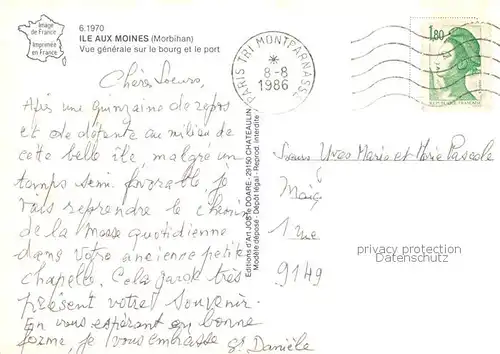 Image
de France
Imprimée
en France
6.1970
ILE AUX MOINES (Morbihan)
Vue générale sur le bourg et le port
Chères Soeurs,
Après une quinzaine de repos
et de détente au milieu de
cette belle île, malgré un
temps semi favorable, je
vais reprendre le chemin
de la Messe quotidienne
dans votre ancienne petite
chapelle. Cela garde très
présent votre souvenir.
En vous espérant en bonne
forme, je vous embrasse
Sr Danièle
Editions d'Art JOS le DOARE - 29150 CHATEAULIN
Modèle déposé - Dépôt légal - Reprod. interdite
PARIS TRI MONTPARNASSE
8-8
1986
1,80
REPUBLIQUE FRANÇAISE
Soeurs Yves Marie et Marie Pascale
1 rue
9149
privacy protection
Datenschutz